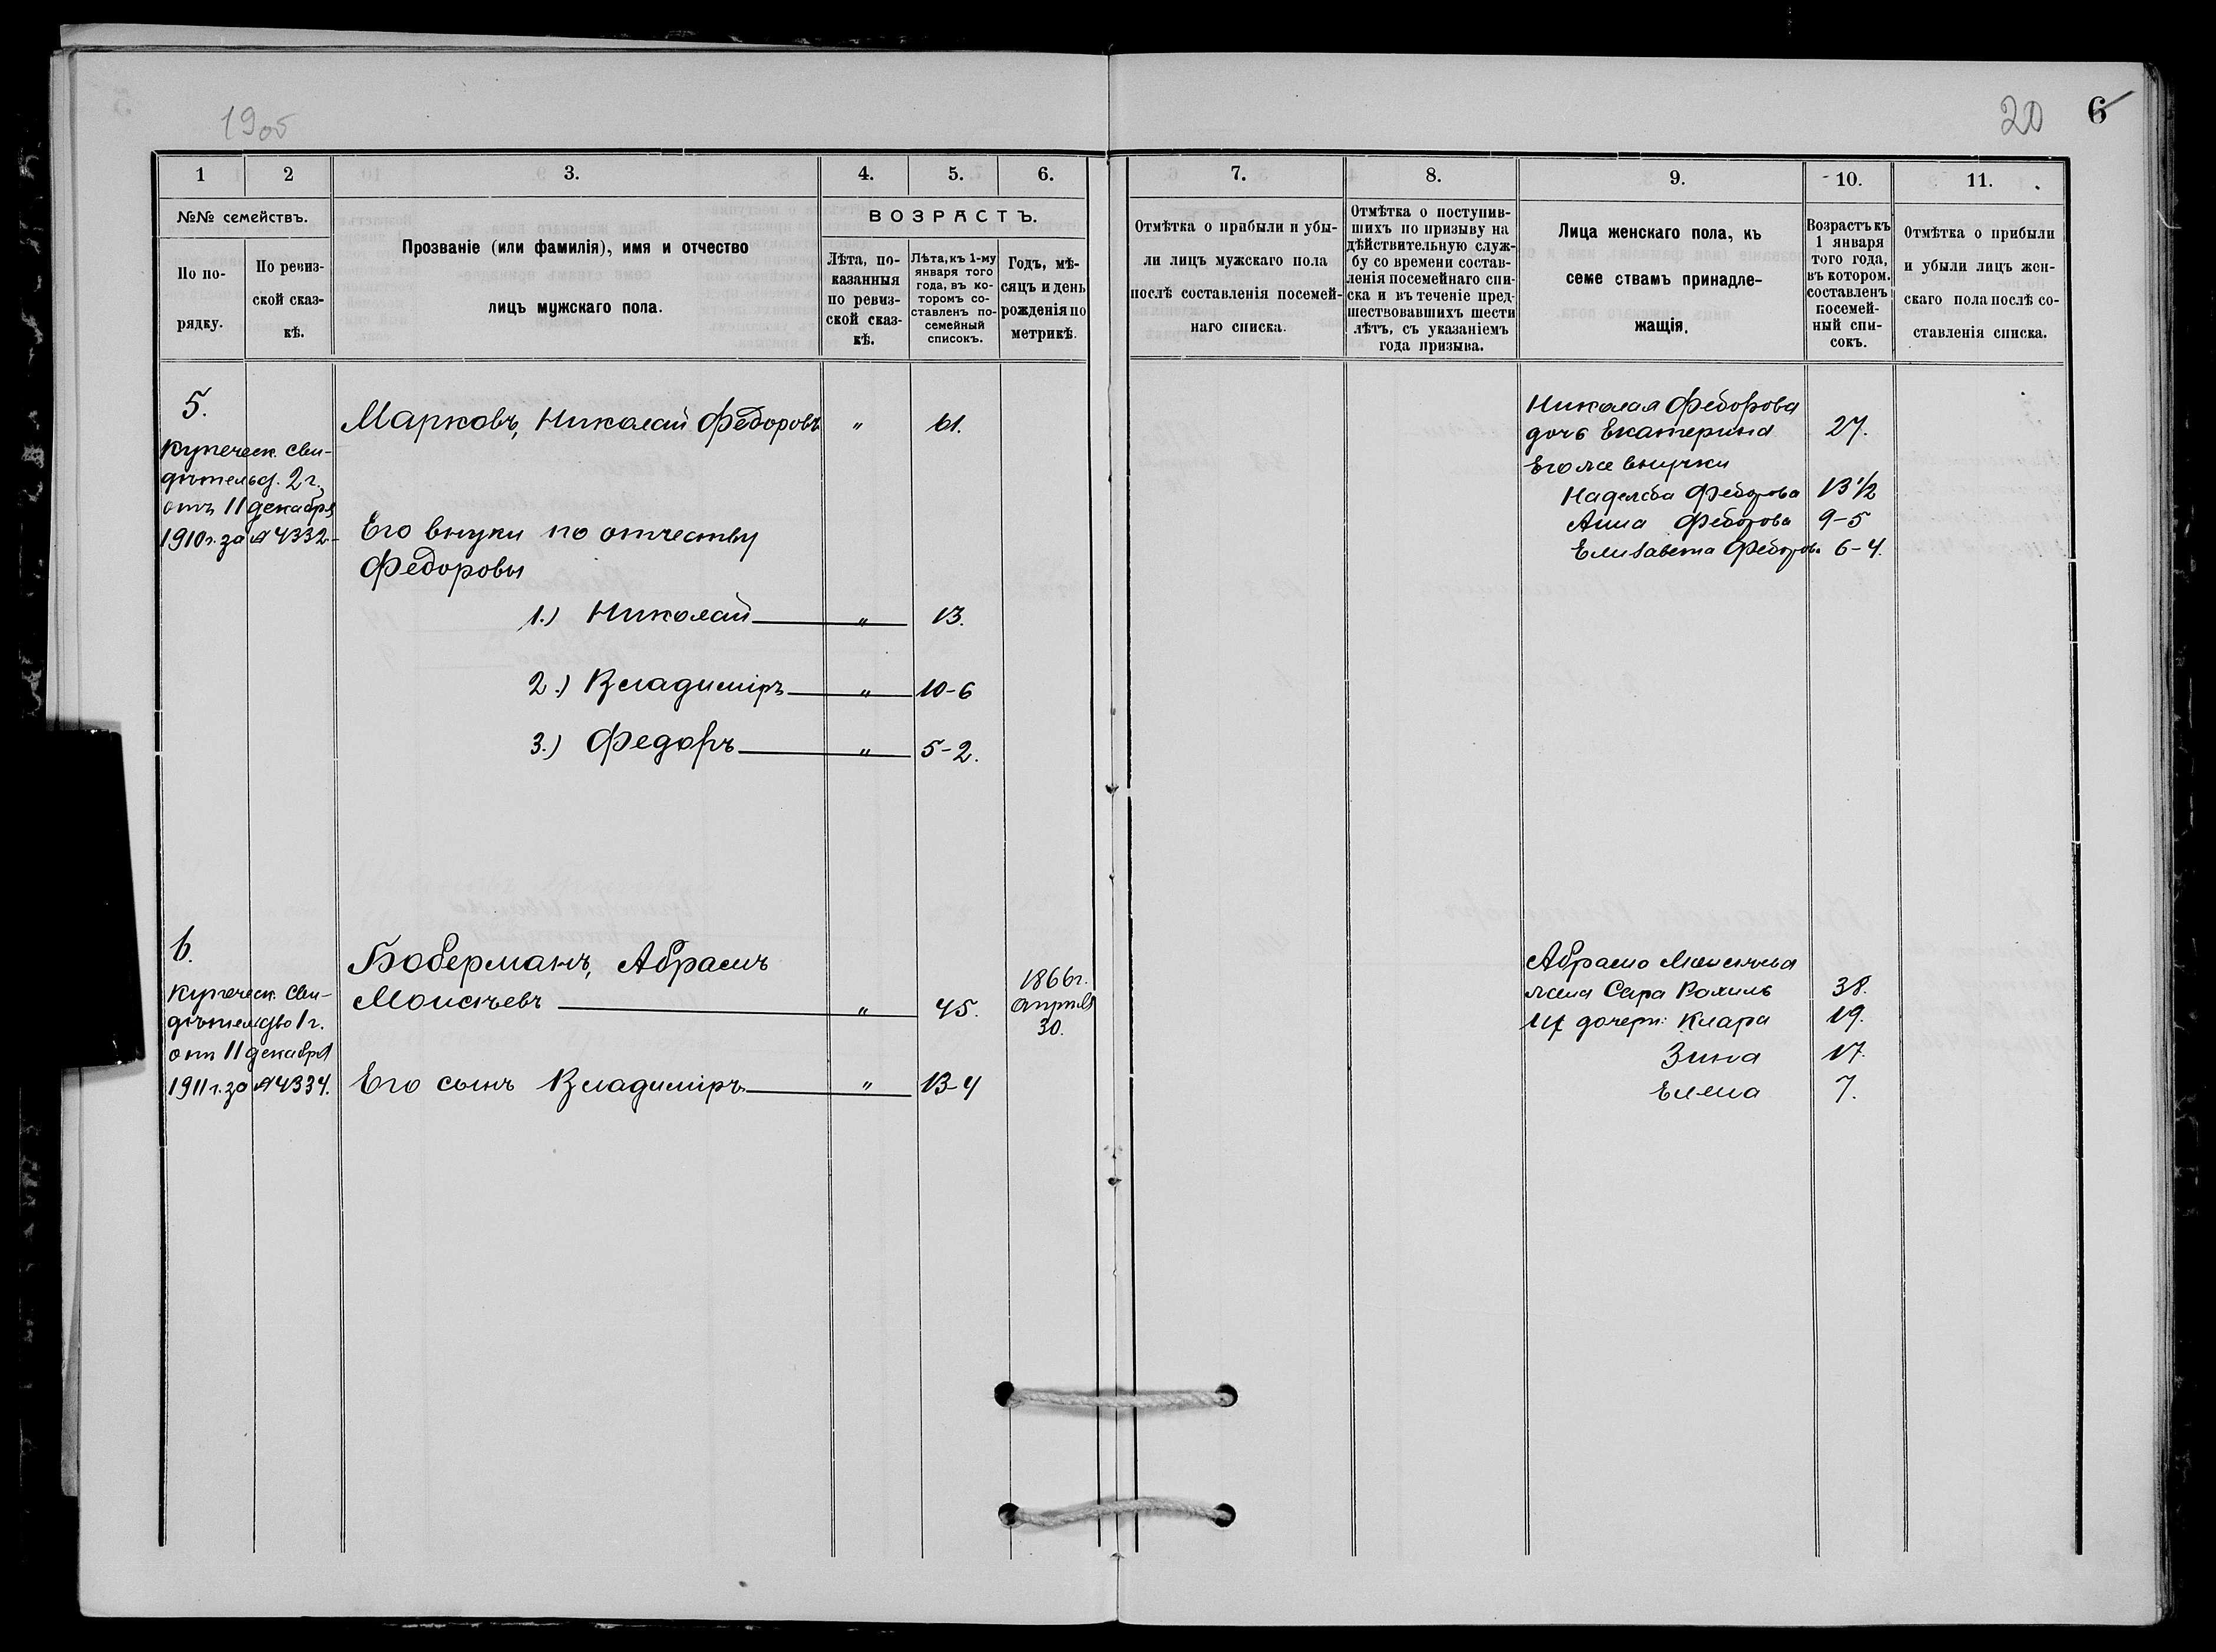 1905
20 6
1 2 3. 4. 5. 6.
№№ семействъ.
По по-
рядку.
По ревиз-
ской сказ-
кѣ.
Прозваніе (или фамилія), имя и отчество
лицъ мужскаго пола.
ВОЗРАСТЪ.
Лѣта, по-
казанныя
по ревиз-
ской сказ-
кѣ.
Лѣта, къ 1-му
января того
года, въ ко-
торомъ со-
ставленъ по-
семейный
списокъ.
Годъ, мѣ-
сяцъ и день
рожденія по
метрикѣ.
7. 8. 9. 10. 11.
Отмѣтка о прибыли и убы-
ли лицъ мужскаго пола
послѣ составленія посемей-
наго списка.
Отмѣтка о поступив-
шихъ по призыву на
дѣйствительную служ-
бу со времени состав-
ленія посемейнаго спи-
ска и въ теченіе пред-
шествовавшихъ шести
лѣтъ, съ указаніемъ
года призыва.
Лица женскаго пола, къ
семе ствамъ принадле-
жащія.
Возрастъ къ
1 января
того года,
въ котором.
составленъ
посемей-
ный спи-
сокъ.
Отмѣтка о прибыли
и убыли лицъ жен-
скаго пола послѣ со-
ставленія списка.
5.
Купеческ. сви-
дѣтельст. 2 г.
отъ 11 декабря
1910 г. за № 4332
Марковъ, Николай Федоровъ " 61.
Его внуки по отчеству
Федоровы
1.) Николай " 13.
2.) Владиміръ " 10-6
3.) Федоръ " 5-2.
Николая Федорова
дочь Екатерина 27.
Его же внучки
Надежда Федорова 13 1/2
Анна Федорова 9-5
Елизавета Федоров. 6-4.
6.
Купеческ. сви-
дѣтельство 1 г.
отъ 11 декабря
1911 г. за № 4334.
Боберманъ, Абрамъ
Моисѣевъ " 45.
1866 г.
апрѣля
30.
Его сынъ Владиміръ " 13-4
Абрама Моисѣева
жена Сара Рахиль 38.
их дочери: Клара 19.
Зина 17.
Елена 7.